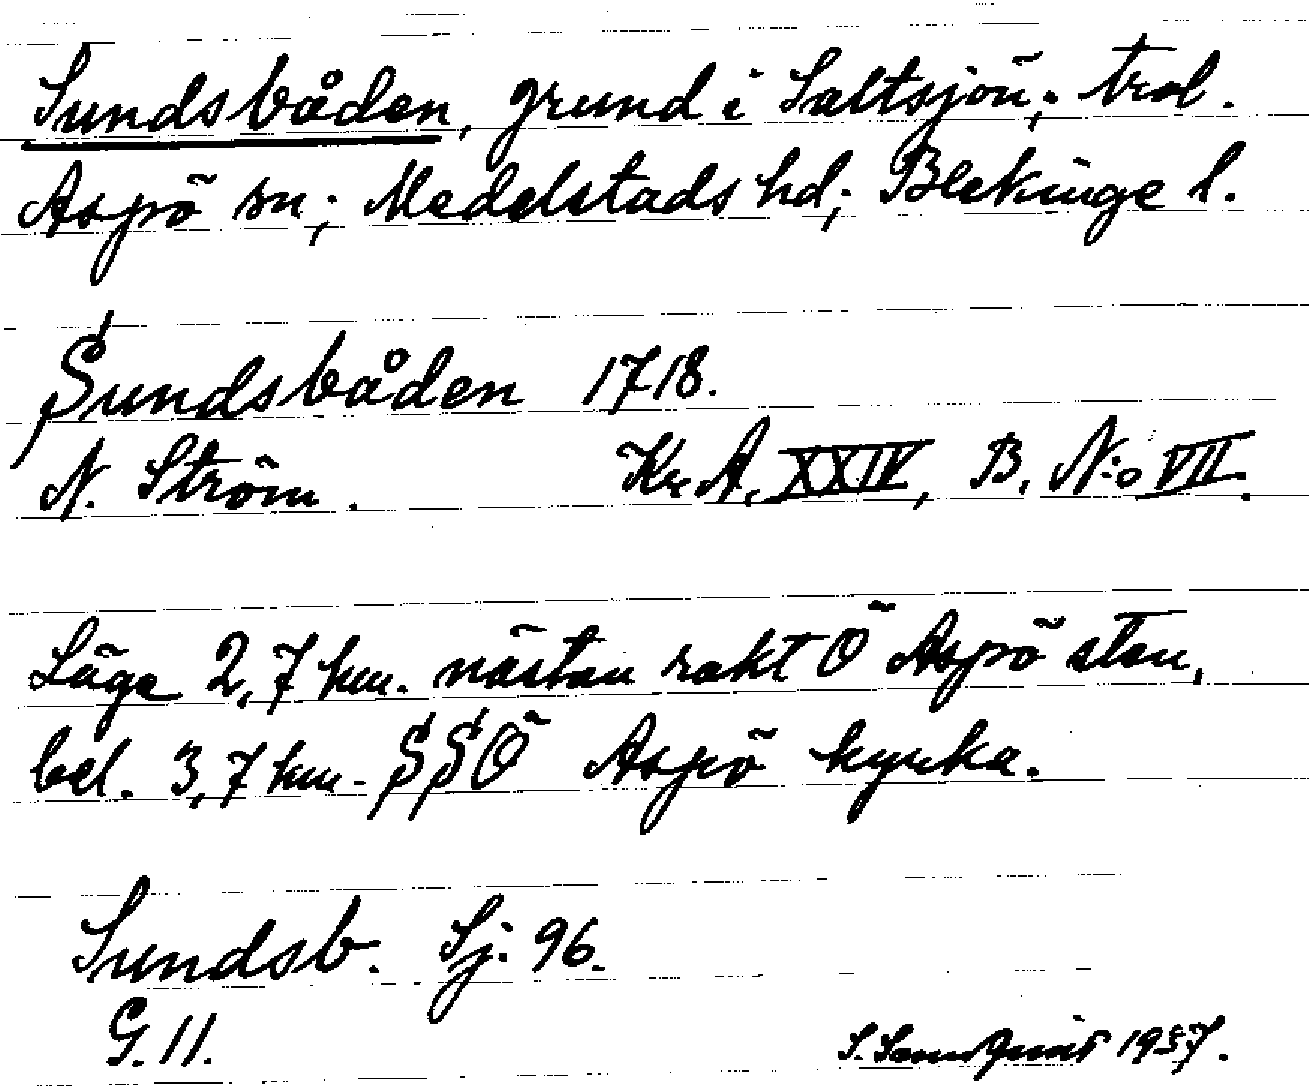 Sundsbåden, grund i Saltsjön; trol.
Aspö sn; Medelstads hd; Blekinge l.
Sundsbåden 1718.
N. Ström. Kr. A. XXIV, B. N:o VII.
Läge 2,7 km. nästan rakt Ö Aspö stn,
bel. 3,7 km. SSÖ Aspö kyrka.
Sundsb. Sj. 96.
G. 11.
S. 1957.